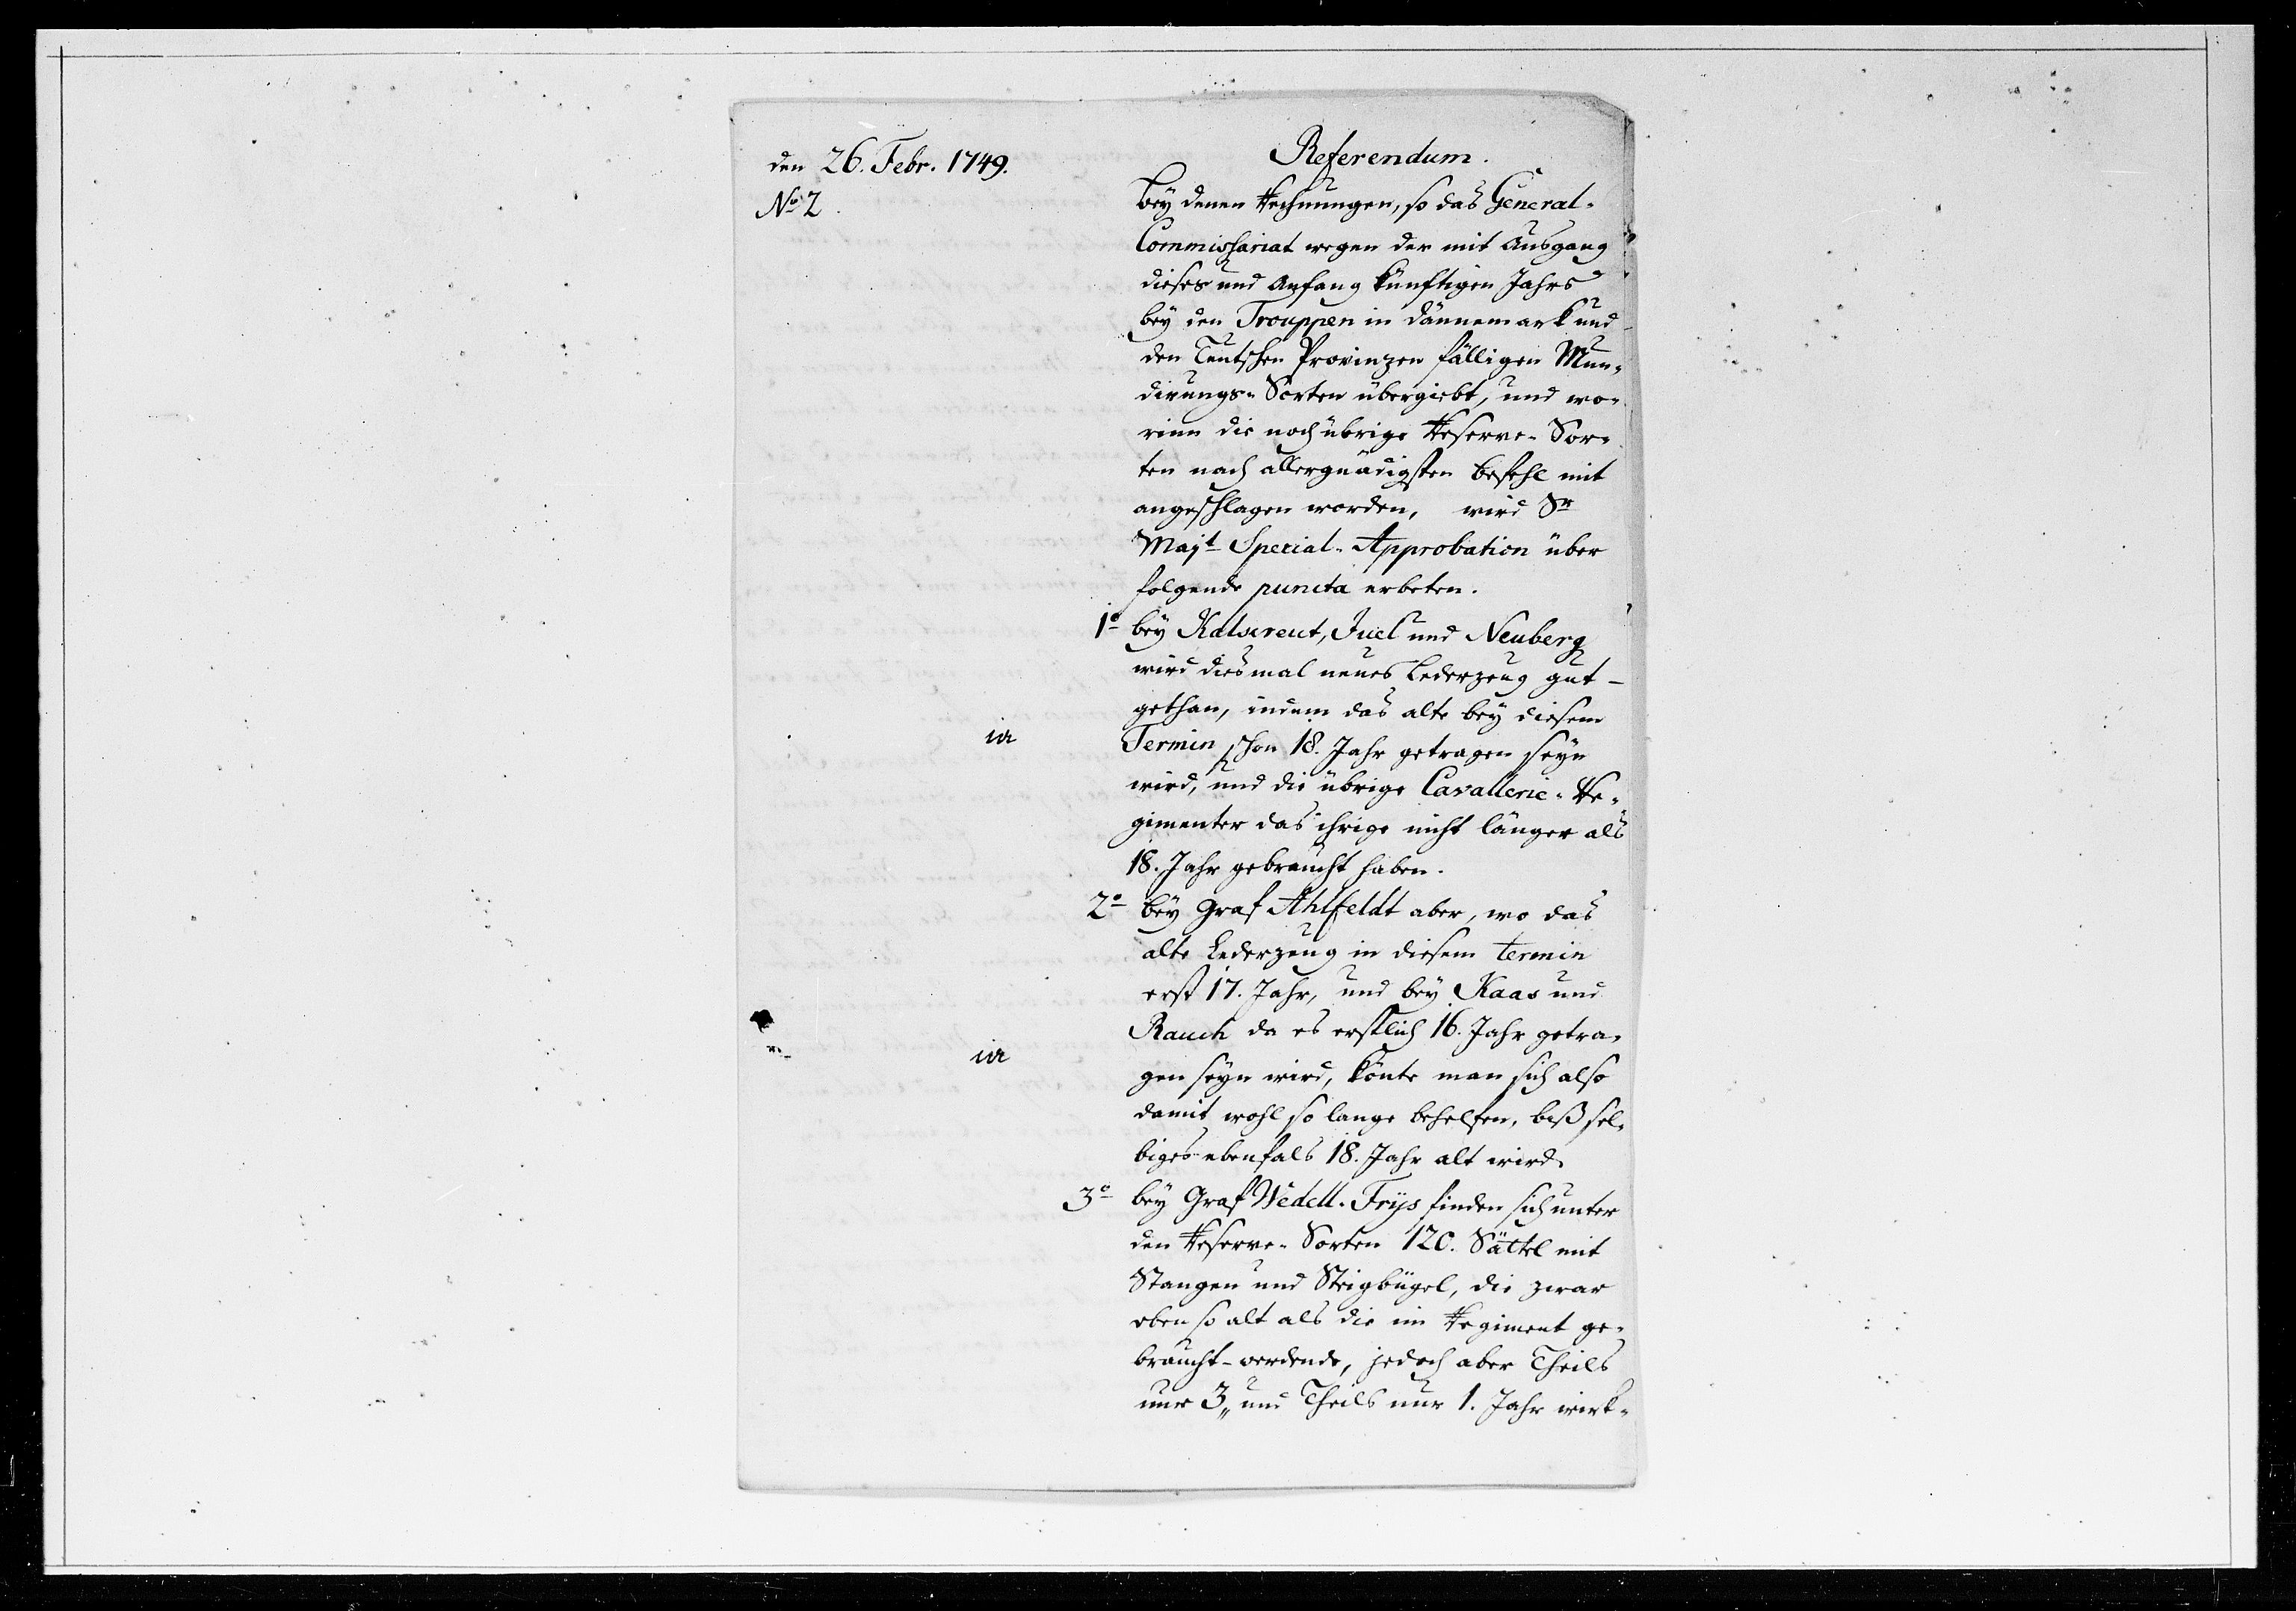 den 26. Febr. 1749.
No 2
Referendum.
Bey denen Rechnungen, so das General-
Commissariat wegen der mit Ausgang
dieses und Anfang künftigen Jahrs
bey den Trouppen in Dännemark und
den Teutschen Provinzen fälligen Mun-
dirungs-Sorten übergiebt, und wo-
rinn die noch übrige Reserve-Sor-
ten nach allergnädigsten Befehl mit
angeschlagen worden, wird Sr
Majt Special-Approbation über
folgende puncta erbeten.
1o bey Kalvereut, Juel und Neuberg
wird diesmal neues Lederzeug gut-
gethan, indem das alte bey diesem
ia
Termin schon 18. Jahr getragen seyn
wird, und die übrige Cavallerie-Re-
gimenter das ihrige nicht länger als
18. Jahr gebraucht haben.
2o bey Graf Ahlfeldt aber, wo das
alte Lederzeug in diesem termin
erst 17. Jahr, und bey Kaas und
Rauch da es erstlich 16. Jahr getra-
ia
gen seyn wird, könte man sich also
damit wohl so lange behelfen, biß sel-
biges ebenfals 18. Jahr alt wird.
3o bey Graf Wedell-Frijs finden sich unter
den Reserve-Sorten 120. Sättel mit
Stangen und Steigbügel, die zwar
eben so alt als die im Regiment ge-
braucht-werdende, jedoch aber Theils
nur 3,, und Theils nur 1. Jahr wirk-